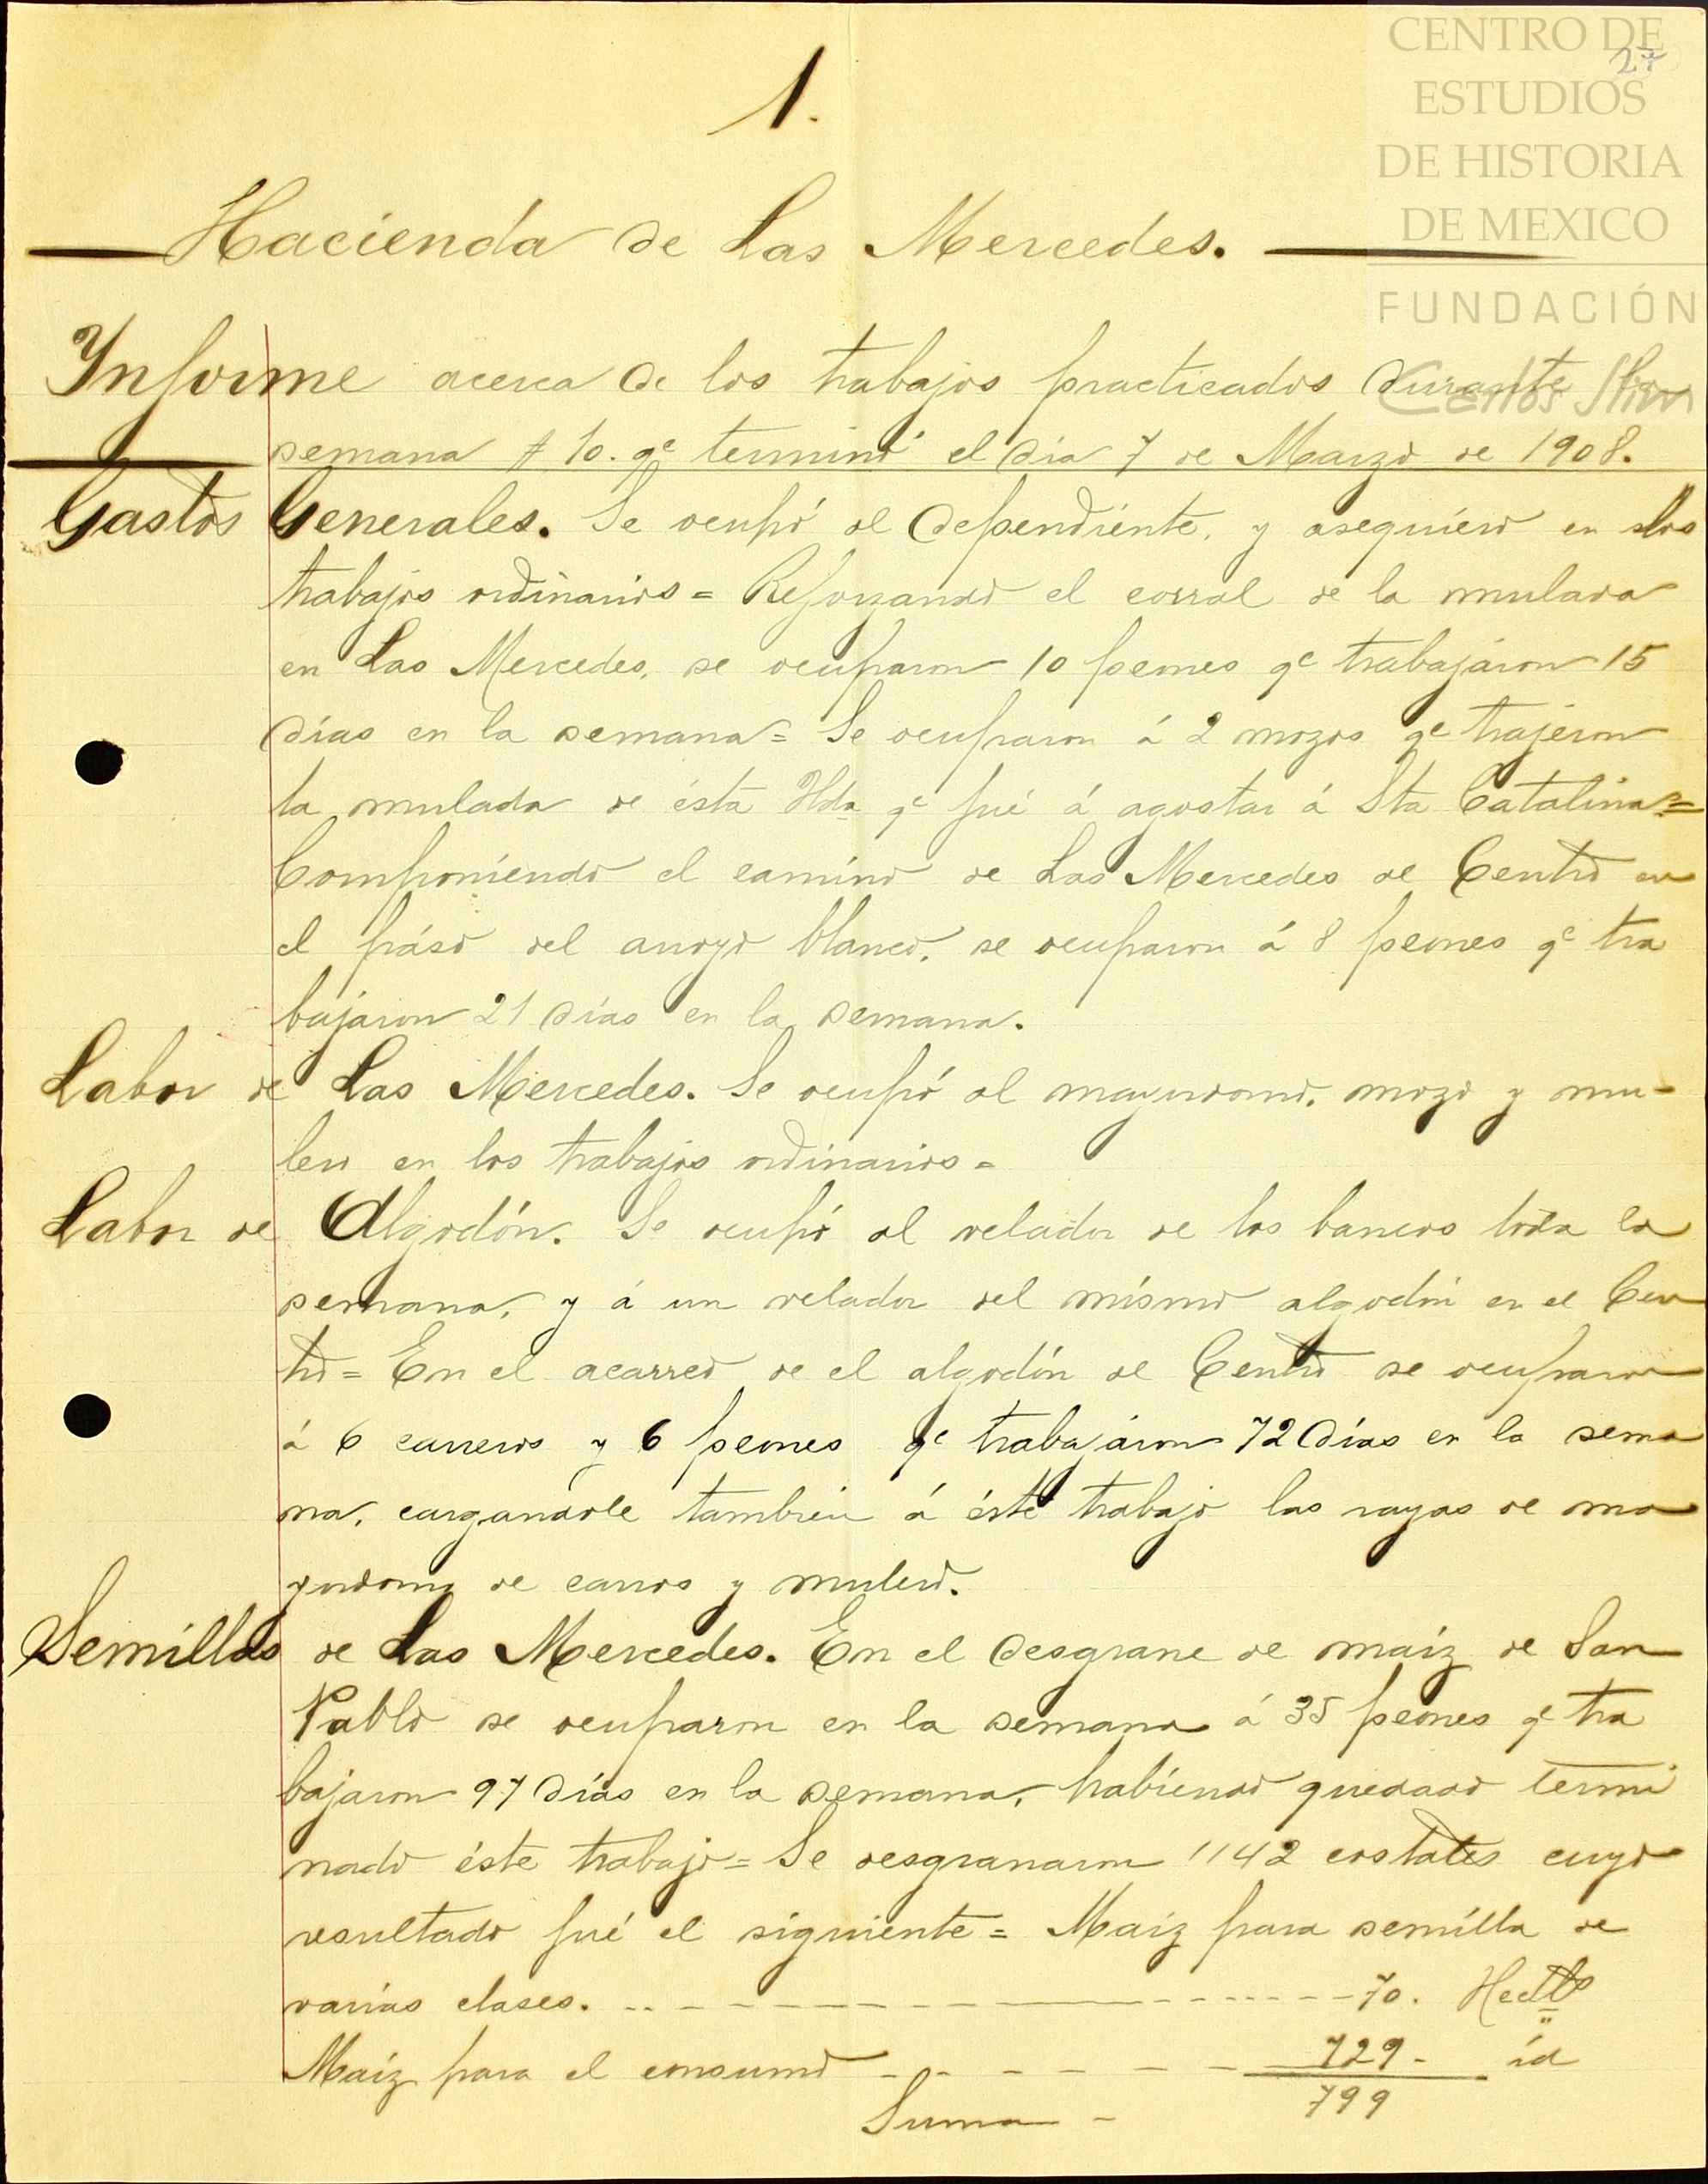 CENTRO DE
27
ESTUDIOS
DE HISTORIA
DE MEXICO
FUNDACIÓN
Carlos Slim
1.
Hacienda de Las Mercedes.
Informe acerca de los trabajos practicados durante la
semana # 10. qe terminó el día 7 de Marzo de 1908.
Gastos Generales. Se ocupó al dependiente, y asequiero en los
trabajos ordinarios = Reforzando el corral de la mulada
en Las Mercedes, se ocuparon 10 peones qe trabajáron 15
días en la semana = Se ocuparon á 2 mozos qe trajeron
la mulada de ésta Hda qe fué á agostar á Sta Catalina =
Componiendo el camino de Las Mercedes al Centro en
el páso del arroyo blanco, se ocuparon á 8 peones qe tra
bajaron 21 días en la semana.
Labor de Las Mercedes. Se ocupó al mayordomo, mozo y mu-
lero en los trabajos ordinarios =
Labor de Algodón. Se ocupó al velador de los bancos toda la
semana, y á un velador del mismo algodón en el Cen
tro = En el acarreo de el algodón al Centro se ocuparon
á 6 carreros y 6 peones qe trabajáron 72 días en la sema
na, cargandole tambien á éste trabajo las rayas de ma
yordomo de carros y mulero.
Semillas de Las Mercedes. En el desgrane de maíz de San
Pablo se ocuparon en la semana á 35 peones qe tra
bajaron 97 días en la semana, habiendo quedado termi
nado éste trabajo = Se desgranaron 1142 costales cuyo
resultado fué el siguiente = Maíz para semilla de
varias clases. 70. Hectls
Maíz para el consumo 729 - id
Suma - 799